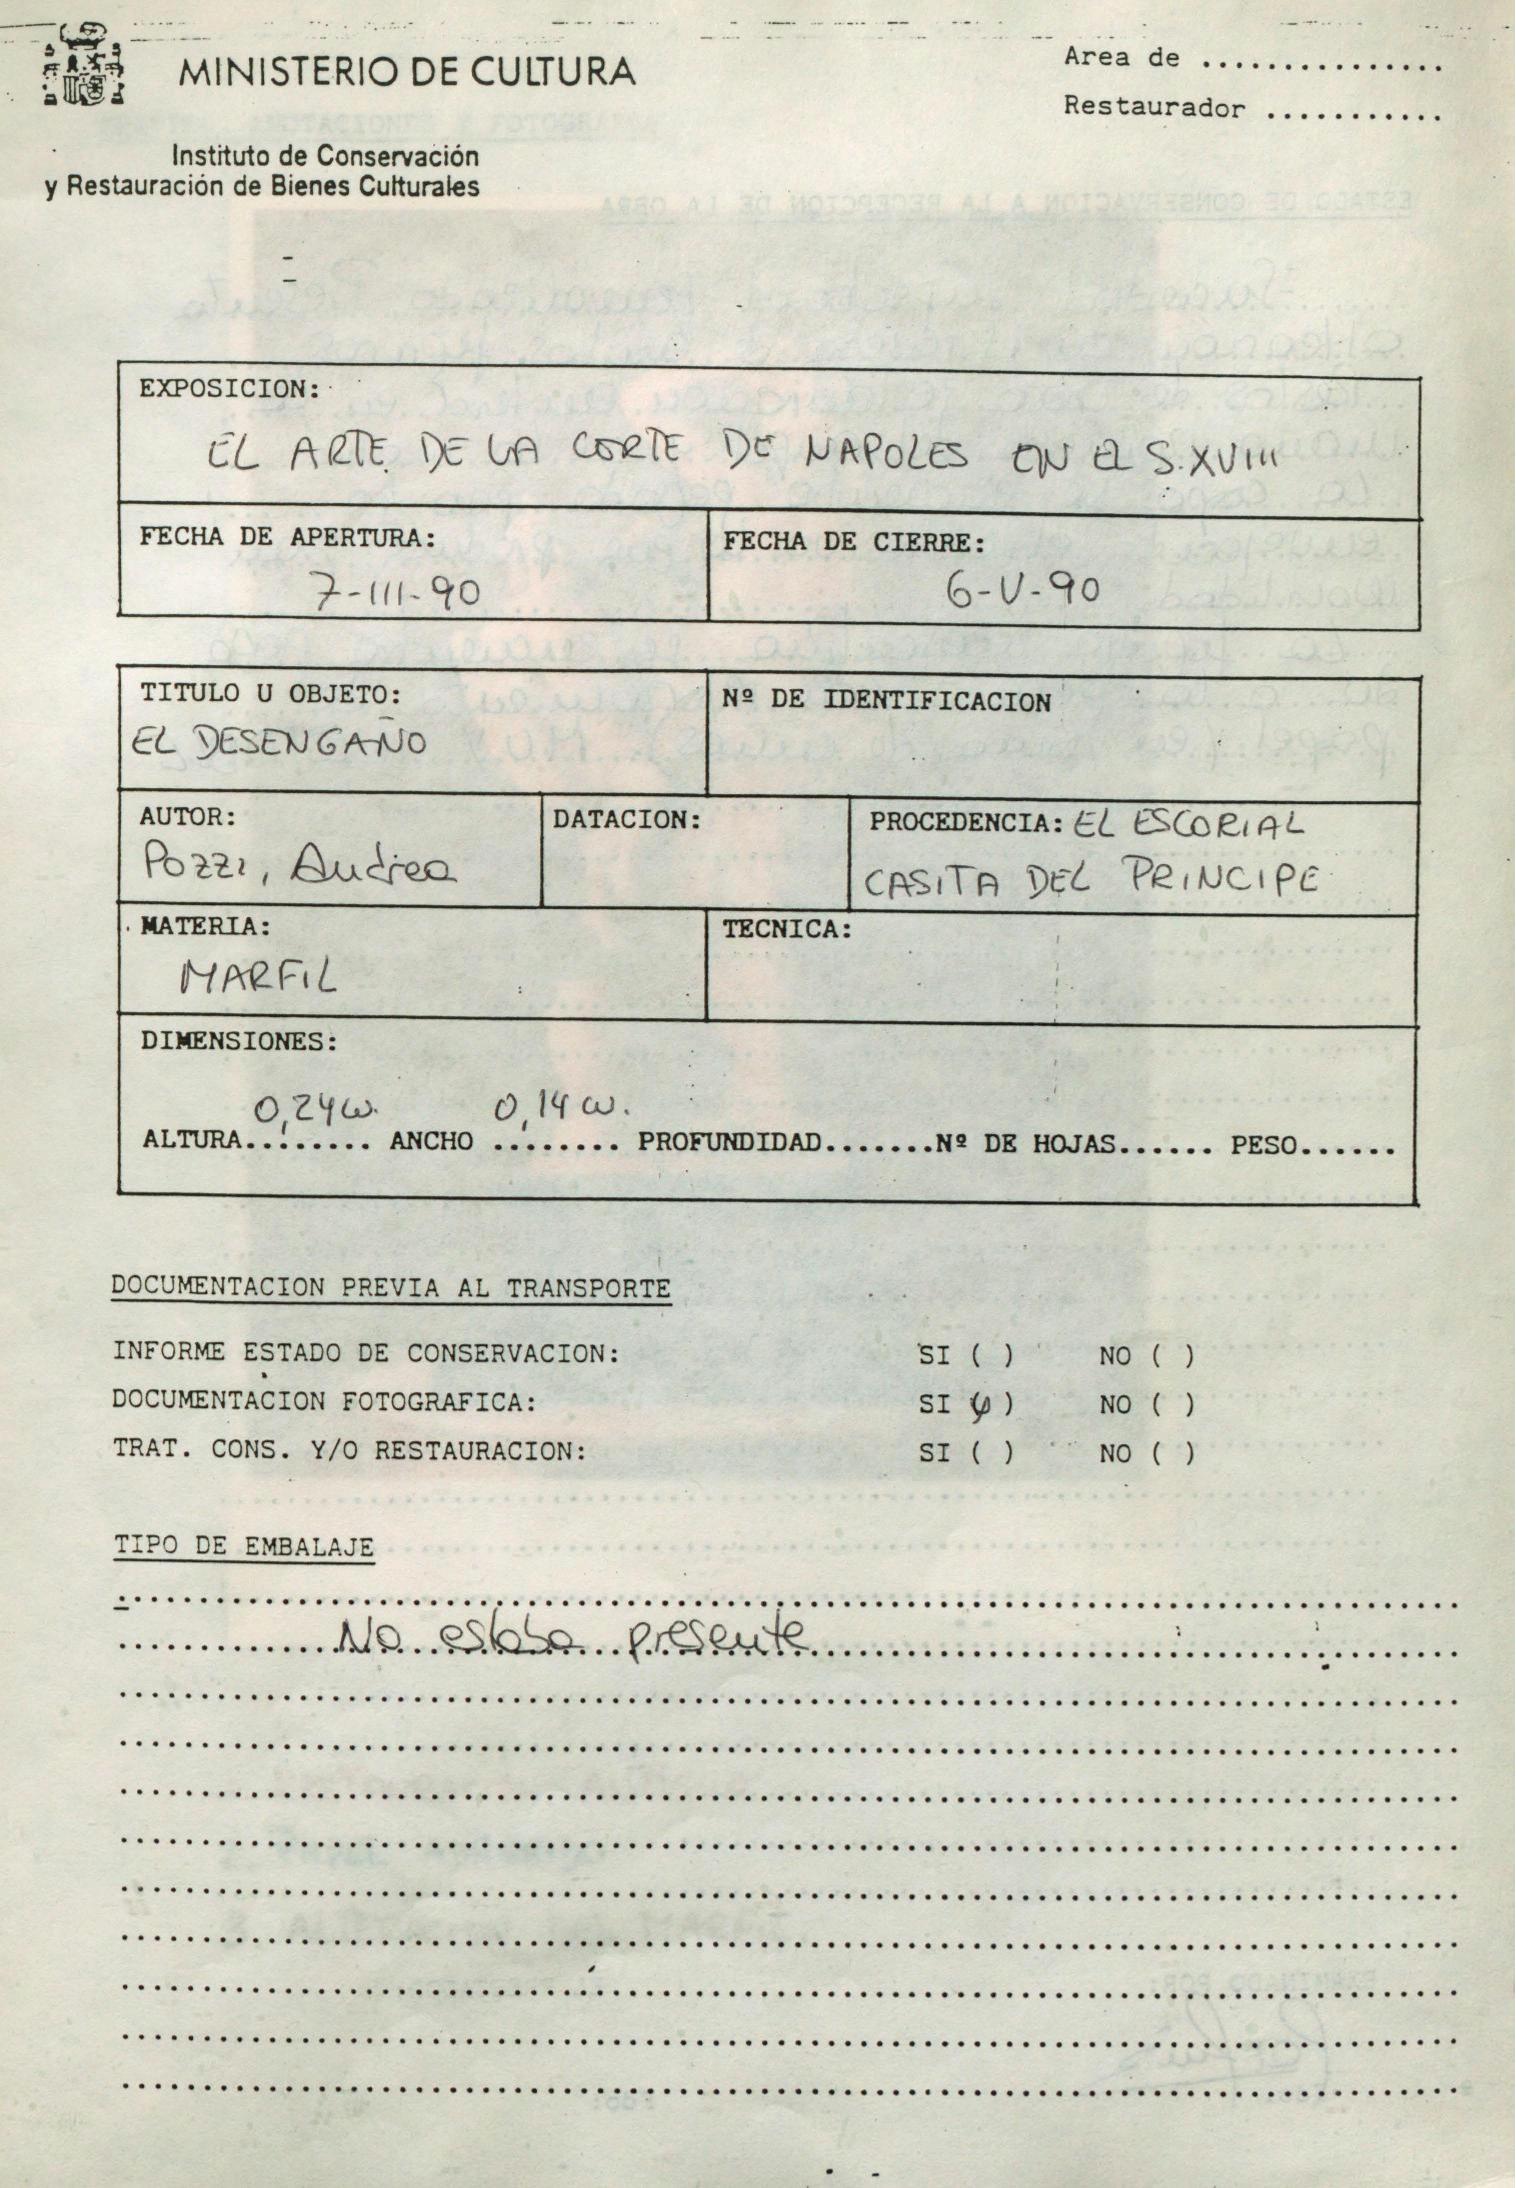 MINISTERIO DE CULTURA
Area de ...............
Restaurador ...........
Instituto de Conservación
y Restauración de Bienes Culturales
EXPOSICION:
EL ARTE DE LA CORTE DE NAPOLES EN EL S. XVIII
FECHA DE APERTURA:
7-III-90
FECHA DE CIERRE:
6-V-90
TITULO U OBJETO:
EL DESENGAÑO
Nº DE IDENTIFICACION
AUTOR:
Pozzi, Andrea
DATACION:
PROCEDENCIA: EL ESCORIAL
CASITA DEL PRINCIPE
MATERIA:
MARFIL
TECNICA:
DIMENSIONES:
0,24 m. 0,14 m.
ALTURA......... ANCHO ........ PROFUNDIDAD.......Nº DE HOJAS...... PESO......
DOCUMENTACION PREVIA AL TRANSPORTE
INFORME ESTADO DE CONSERVACION: SI ( ) NO ( )
DOCUMENTACION FOTOGRAFICA: SI (φ) NO ( )
TRAT. CONS. Y/O RESTAURACION: SI ( ) NO ( )
TIPO DE EMBALAJE
No estaba presente